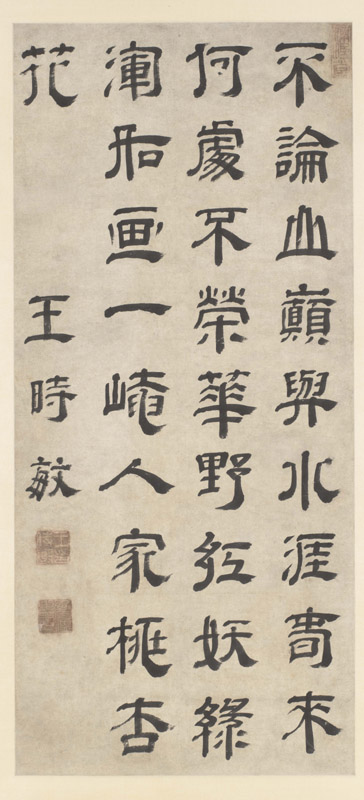 不論山巔與水涯春來
何處不榮華野紅妖綠
渾如画一崦人家桃杏
花 王時敏